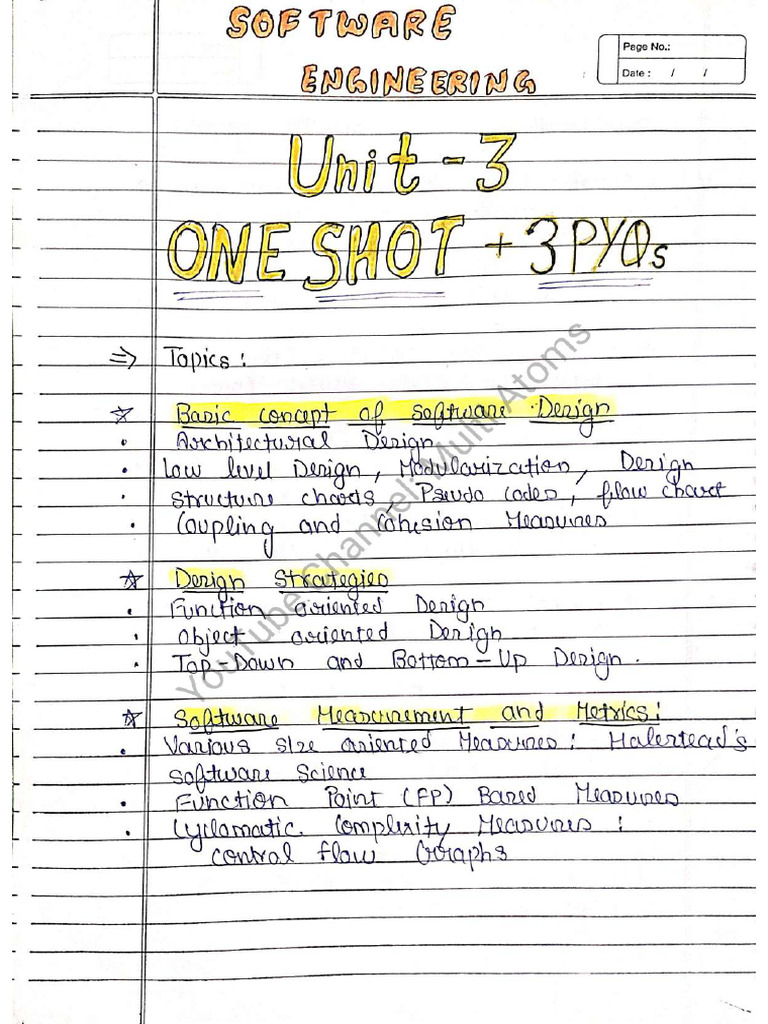 SOFTWARE
ENGINEERING
Page No.:
Date : / /
Unit - 3
ONE SHOT + 3 PYQs
⇒ Topics :
☆ Basic concept of software Design
• Architectural Design
• Low level Design, Modularization, Design
• Structure charts, Pseudo codes, flow chart
• Coupling and Cohesion Measures
☆ Design Strategies
• Function oriented Design
• Object oriented Design
• Top-Down and Bottom-Up Design.
☆ Software Measurement and Metrics:
• Various size oriented Measures: Halestead's
Software Science
• Function Point (FP) Based Measures
• Cyclomatic Complexity Measures :
Control flow Graphs
YouTube Channel: Multi Atoms